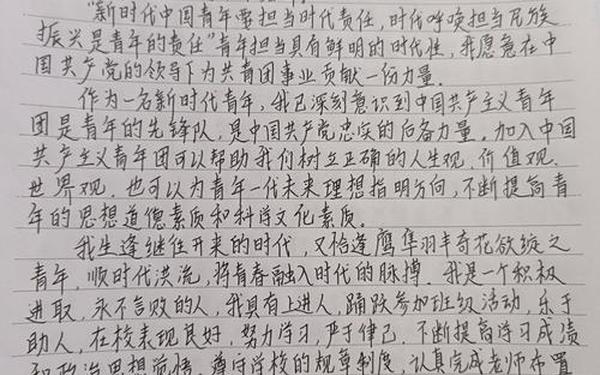 "新时代中国青年要担当时代责任,时代呼唤担当民族
振兴是青年的责任"青年担当具有鲜明的时代性,我愿意在中
国共产党的领导下为共青团事业贡献一份力量。
作为一名新时代青年,我已深刻意识到中国共产主义青年
团是青年的先锋队,是中国共产党忠实的后备力量。加入中国
共产主义青年团可以帮助我们树立正确的人生观、价值观、
世界观,也可以为青年一代未来理想指明方向,不断提高青
年的思想道德素质和科学文化素质。
我生逢继往开来的时代,又恰逢鹰隼羽丰奇花欲绽之
青年,顺时代洪流,将青春融入时代的脉搏。我是一个积极
进取,永不言败的人,我具有上进人,踊跃参加班级活动,乐于
助人,在校表现良好,努力学习,严于律己,不断提高学习成绩
和政治思想觉悟,遵守学校的规章制度,认真完成老师布置